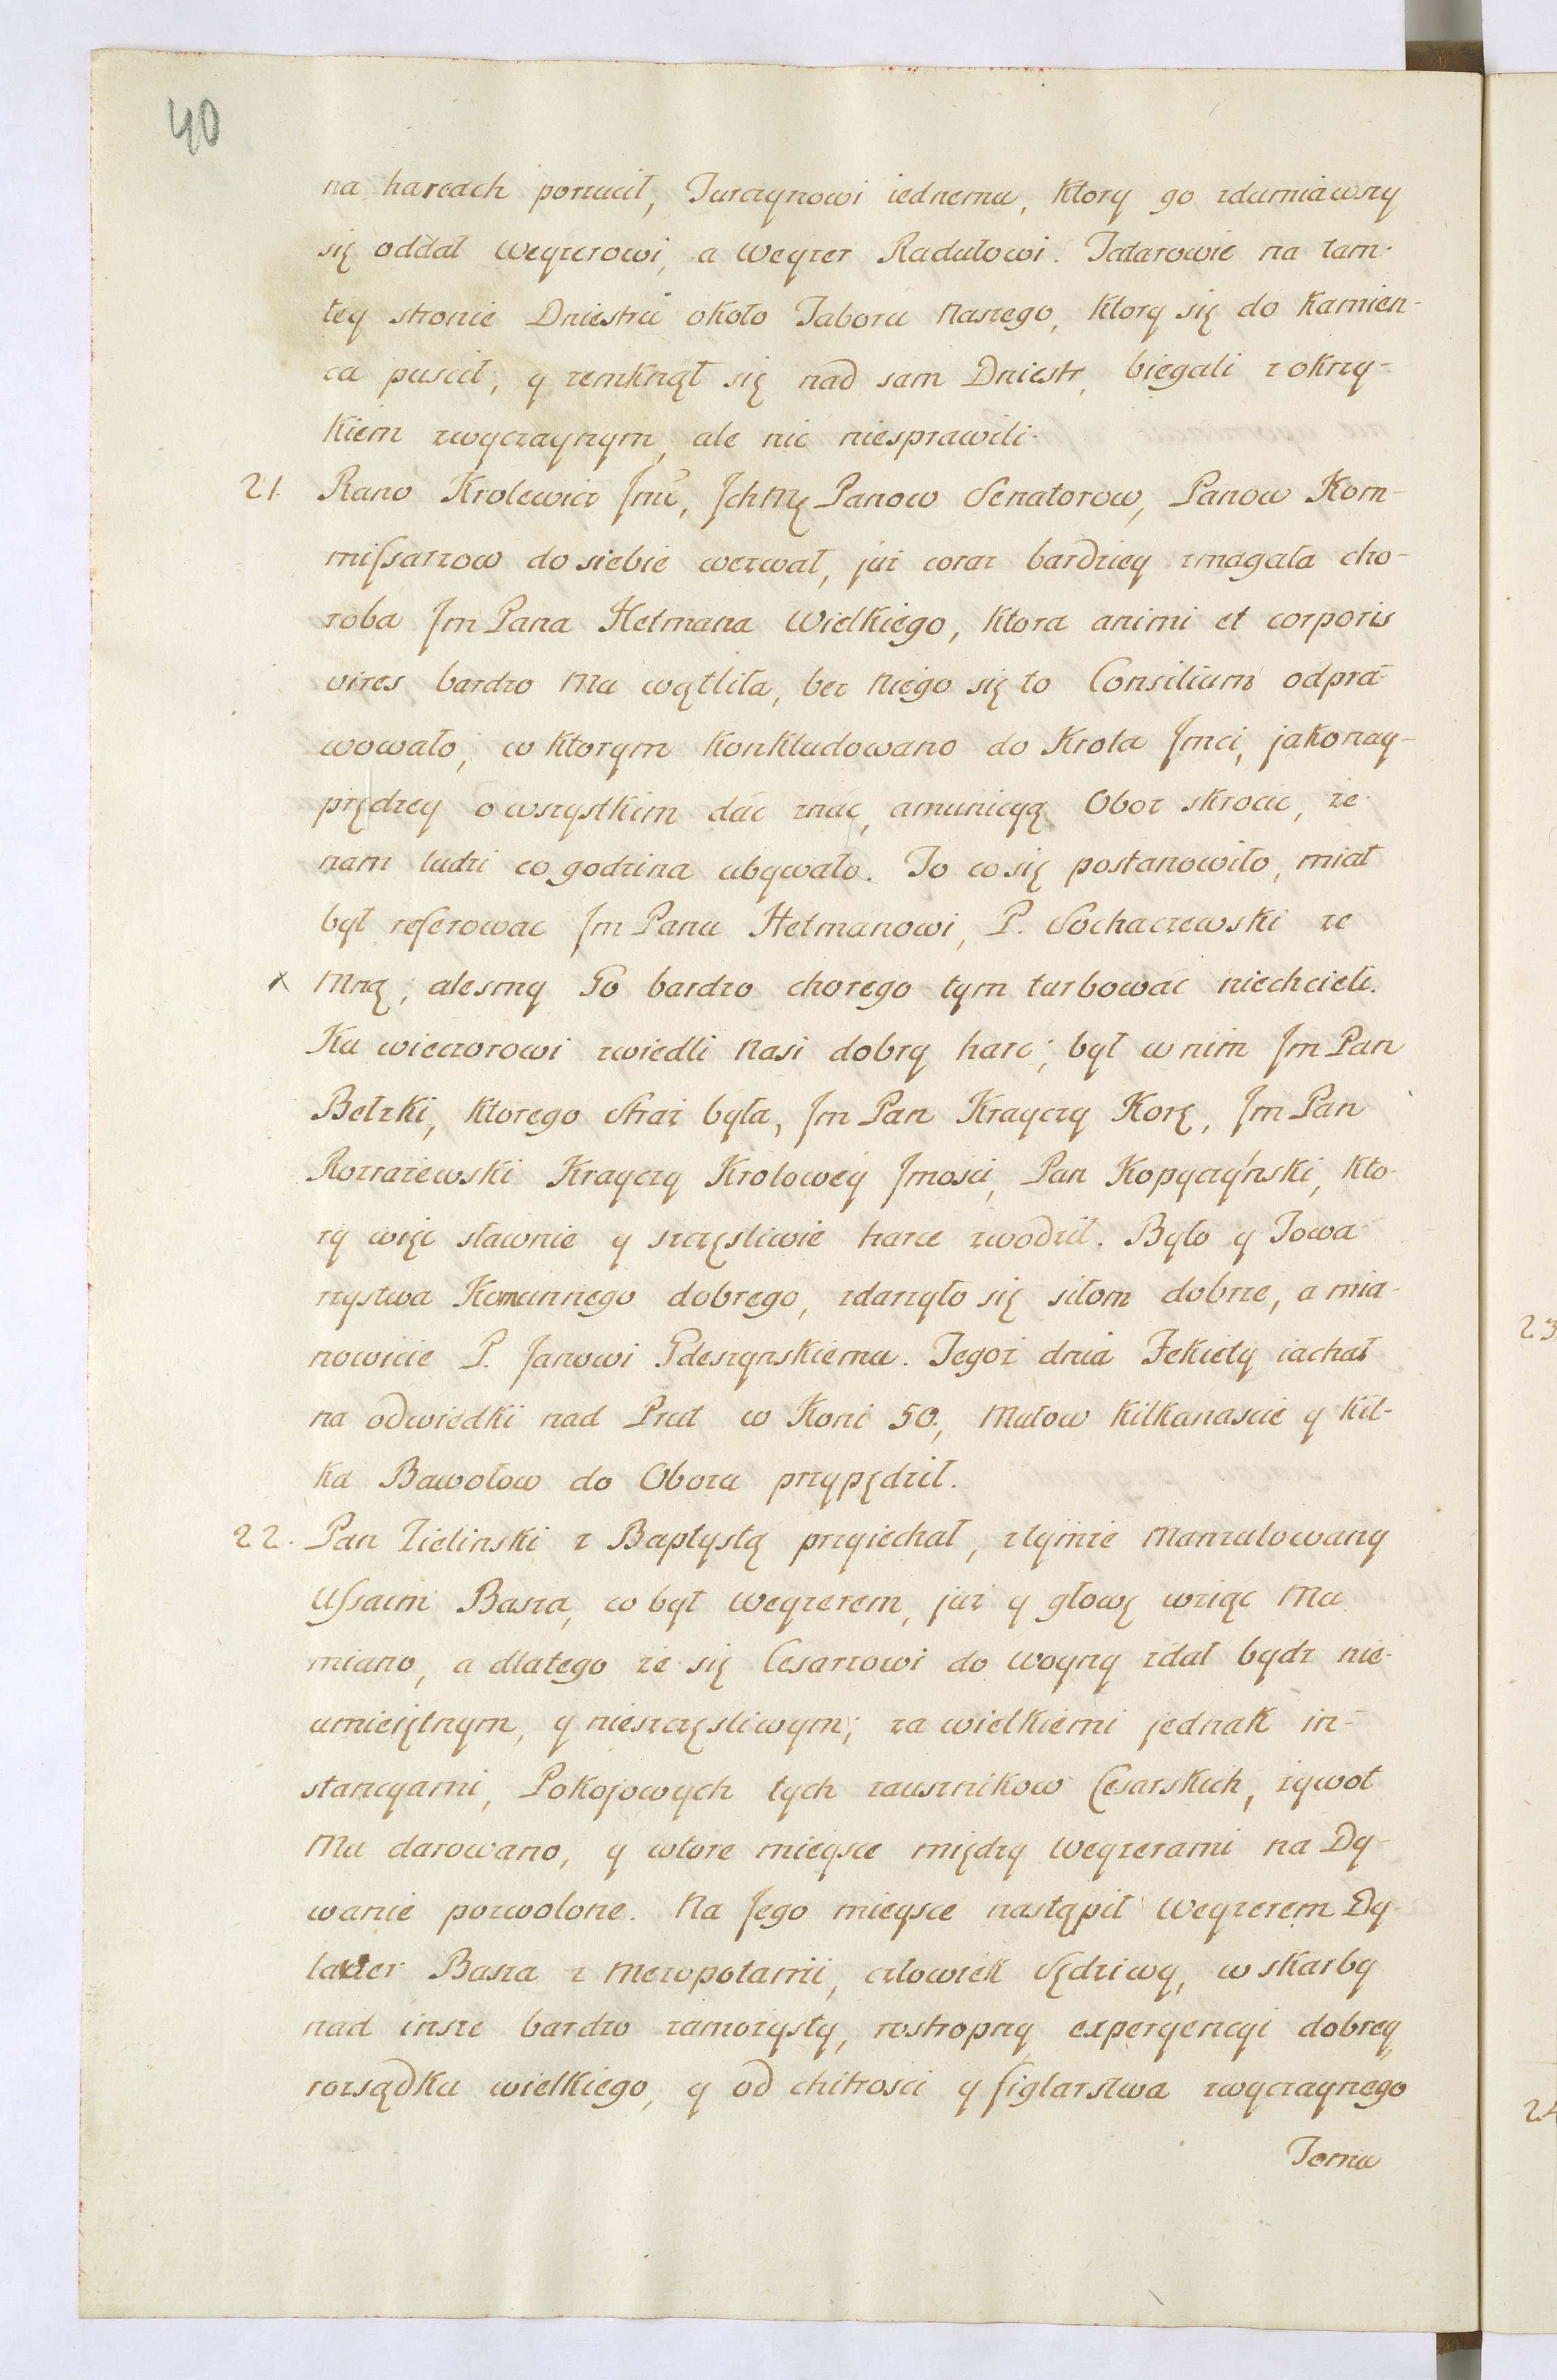 40
na harcach porzucił, Turczynowi iednemu, ktory go zdumiawszy
się oddał wezyrowi, a wezyer Radułowi. Tatarowie na tam-
tey stronie Dniestru około Taboru naszego, ktory się do Kamien-
ca puscił, y zemknął się nad sam Dniestr, biegali z okrzy-
kiem zwyczaynym, ale nic niesprawili.
21. Rano Krolewicz Jmć, Jchmę Panow Senatorow, Panow Kom-
missarzow do siebie wezwał, już coraz bardziey zmagała cho-
roba Jm Pana Hetmana Wielkiego, ktora animi et corporis
vires bardzo Mu wątliła, bez Niego się to Consilium odpra-
wowało, w ktorym konkludowano do Krola Jmci, jako nay-
prędzey o wszystkim dać znać, amunicyą Oboz skrocic, że
nam ludzi co godzina ubywało. To co się postanowiło, miał
był referowac Jm Panu Hetmanowi, P. Sochaczewski ze
x Mną; alesmy Go bardzo chorego tym turbować niechcieli.
Ku wieczorowi zwiedli Nasi dobry harc; był w nim Jm Pan
Bełzki, ktorego Straż była, Jm Pan Krayczy Korę, Jm Pan
Rozrażewski Krayczy Krolowey Jmosci, Pan Kopyczyński, kto-
ry więc sławnie y szczęsliwie harce zwodził. Było y Towa-
rzystwa Komunnego dobrego, zdarzyło się siłom dobrze, a mia-
nowicie P. Janowi Gdeszynskiemu. Tegoż dnia Fekiety iachał
na odwiedki nad Prut w Koni 50., Mułow kilkanascie y kil-
ka Bawołow do Obozu przypędził.
22. Pan Zielinski z Baptystą przyiechał, z tymże Manzulowany
Ussaim Basza, co był wezyrem, już y głowę wziąć Mu
miano, a dlatego że się Cesarzowi do woyny zdał bydz nie-
umieiętnym, y nieszczęsliwym; za wielkiemi jednak in-
stancyami, Pokojowych tych zausznikow Cesarskich, żywot
Mu darowano, y wtore mieysce między wezyerami na Dy-
wanie pozwolone. Na Jego mieysce nastąpił wezyerem Dy-
lawer Basza z Mezopotamii, człowiek Sędziwy, w skarby
nad insze bardzo zamożysty, rostropny, experyencyi dobrey,
rozsądku wielkiego, y od chitrosci y figlarstwa zwyczaynego
Temu
23
24